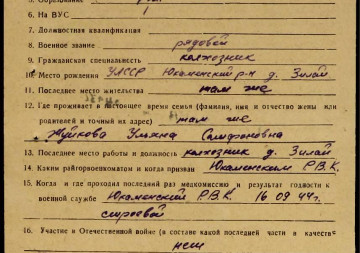 5. Образование
6. На ВУС
7. Должностная квалификация
8. Военное звание рядовой
9. Гражданская специальность колхозник
10. Место рождения УАССР Юкаменский р-н д. Зилай
11. Последнее место жительства там же
12. Где проживает в настоящее время семья (фамилия, имя и отчество жены или
родителей и точный их адрес) там же
Жуйкова Ульяна Самфоновна
13. Последнее место работы и должность колхозник д. Зилай
14. Каким райгорвоенкоматом и когда призван Юкаменским Р.В.К.
15. Когда и где проходил последний раз медкомиссию и результат годности к
военной службе Юкаменский Р.В.К. 16 09 44г.
строевой
16. Участие в Отечественной войне (в составе какой последней части и в качеств
нет